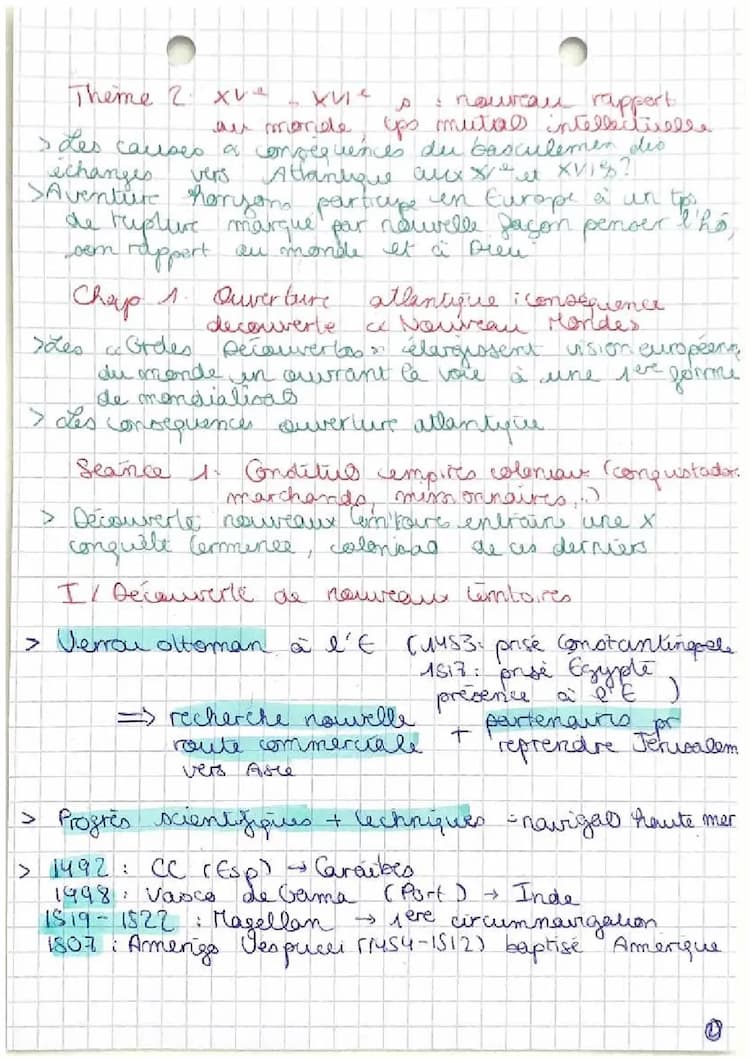 Thème 2. XVe - XVIe s : nouveau rapport
au monde, tps mutat° intellectuelle
> Les causes a conséquences du basculemen des
échanges vers Atlantique aux XVe et XVIe s?
> Aventure horizons participe en Europe à un tps
de rupture marqué par nouvelle façon penser l'hô,
sem rapport au monde et à Dieu
Chap 1. Ouverture atlantique : conséquence
decouverte « Nouveau Mondes
> Les « Grdes Découvertes » élargissent vision européenne
du monde en ouvrant la voie à une 1ère forme
de mondialisat°
> Les conséquences ouverture atlantique
Séance 1. Constitut° empires coloniaux (conquistador.
marchands, missionnaires,..)
> Découverte nouveaux territoire entraine une x
conquête , colonisat° de ces derniers
I / Découverte de nouveaux territoires
> Verrou ottoman à l'E (1453: prise Constantinople
1517: prise Égypte
présence à l'E )
=> recherche nouvelle + partenaires pr
route commerciale reprendre Jérusalem
vers Asie
> Progrès scientifiques + techniques = navigat° haute mer
> 1492 : CC (Esp) → Caraïbes
1998 : Vasco de Gama (Port) → Inde
1519-1522 : Magellan → 1ère circumnavigation
1507 : Amerigo Vespucci (1454-1512) baptisé Amérique
1